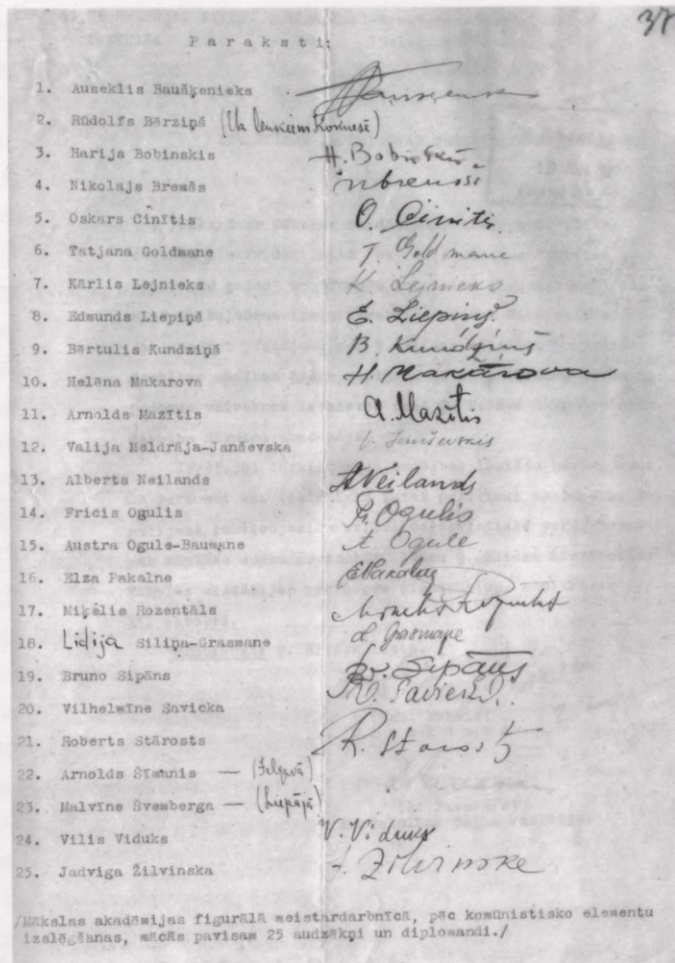 37
Paraksti:
1. Auseklis Baušķenieks
2. Rūdolfs Bērziņš
3. Harijs Bobinskis H. Bobinskis
4. Nikolajs Bremšs
5. Oskars Cinītis O. Cinītis
6. Tatjana Goldmane T. Goldmane
7. Kārlis Lejnieks K. Lejnieks
8. Edmunds Liepiņš E. Liepiņš
9. Bērtulis Kundziņš B. Kundziņš
10. Helēna Makarova H. Makarova
11. Arnolds Mazītis A. Mazītis
12. Valija Meldrāja-Janševska
13. Alberts Neilands A Neilands
14. Fricis Ogulis F. Ogulis
15. Austra Ogule-Baumane A Ogule
16. Elza Pakalne
17. Miķelis Rozentāls
18. Lidija Siliņa-Grasmane L Grasmane
19. Bruno Sipāns Br. Sipāns
20. Vilhelmīne Savicka
21. Roberts Stārosts R. Starosts
22. Arnolds Šimanis — (Jelgavā)
23. Malvīne Švemberga — (Liepājā)
24. Vilis Viduks V. Viduks
25. Jadviga Žilvinska
/Mākslas akadēmijas figurālā meistardarbnīcā, pēc komūnistisko elementu
izslēgšanas, mācās pavisam 25 audzēkņi un diplomandi./